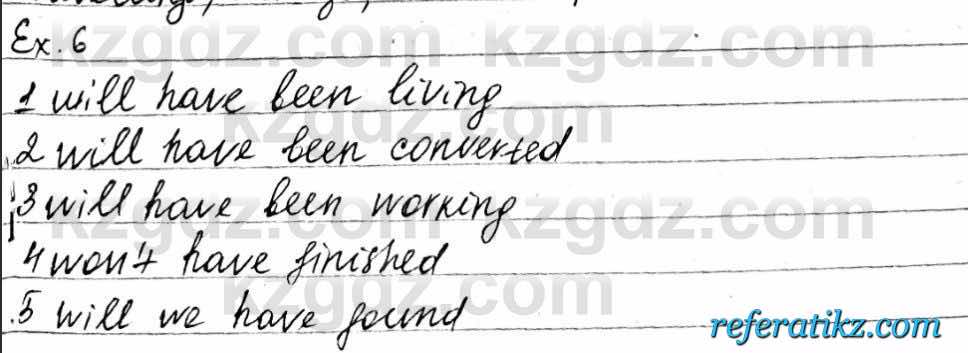 Ex. 6
kzgdz.com kzgdz.com
1 will have been living
kzgdz.com
2 will have been converted
3 will have been working
kzgdz.com kzgdz.com
4 won't have finished
kzgdz.com
5 will we have found
referatikz.com